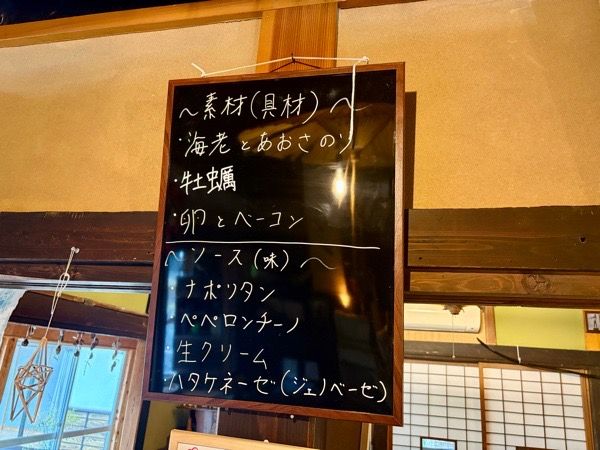 ～素材(具材)～
・海老とあおさのり
・牡蠣
・卵とベーコン
～ソース(味)～
・ナポリタン
・ペペロンチーノ
・生クリーム
・ハタケネーゼ(ジェノベーゼ)